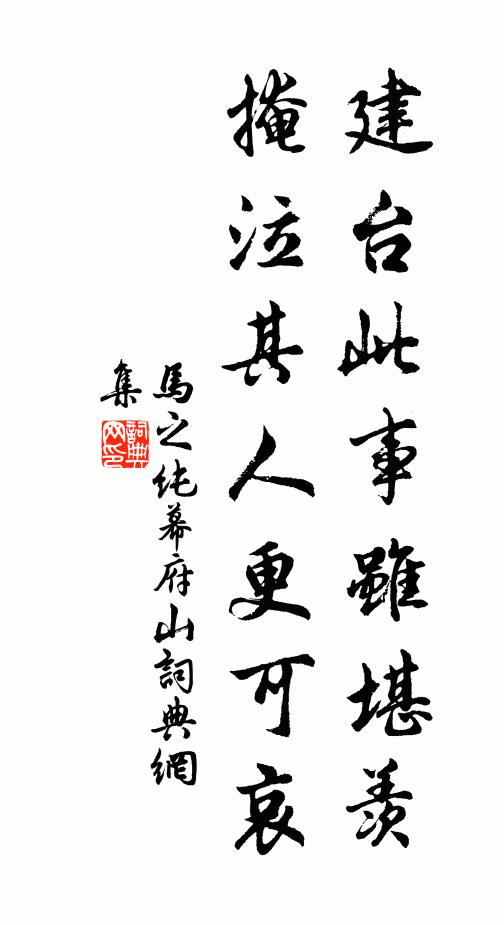 建台此事雖堪羨
掩泣其人更可哀
馬之純幕府山詞典網
集
詞典
网印